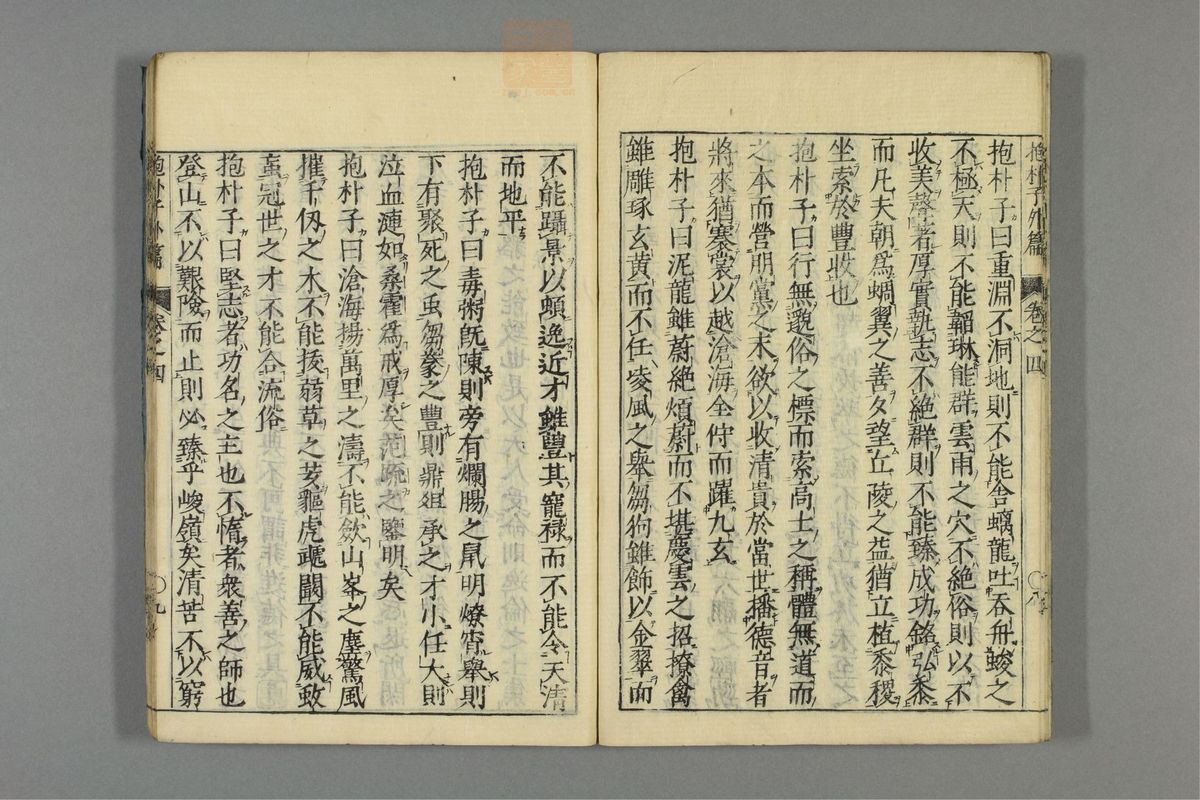 抱朴子外篇 卷之四
抱朴子曰重淵不洞地則不能含螭龍吐吞舟峻之
不極天則不能韜琳能群雲雨之穴不絶俗則以不
收美聲著厚實執志不絶群則不能臻成功銘弘泰
而凡夫朝爲蜩翼之善夕望丘陵之益猶立植黍稷
坐索於豐收也
抱朴子曰行無邈俗之標而索高士之稱體無道而
之本而營朋黨之末欲以收清貴於當世播德音者
將來猶褰裳以越滄海企佇而躍九玄
抱朴子曰泥龍雖蔚絶煩蔚而不堪慶雲之招撩禽
雖雕琢玄黄而不任凌風之舉芻狗雖飾以金翠而
不能躡景以頓逸近才雖豐其寵禄而不能令天清
而地平
抱朴子曰毒粥既陳則旁有爛腸之鼠明燎宵舉則
下有聚死之虫芻豢之豐則鼎俎承之才小任大則
泣血漣如桑霍爲戒厚矣范疏之鑒明矣
抱朴子曰滄海揚萬里之濤不能斂山峯之塵驚風
摧千仭之木不能拔弱草之荄驅虎虓闞不能威蚊
虻冠世之才不能合流俗
抱朴子曰堅志者功名之主也不惰者衆善之師也
登山不以艱險而止則必臻乎峻嶺矣清苦不以窮
抱朴子外篇 卷之四